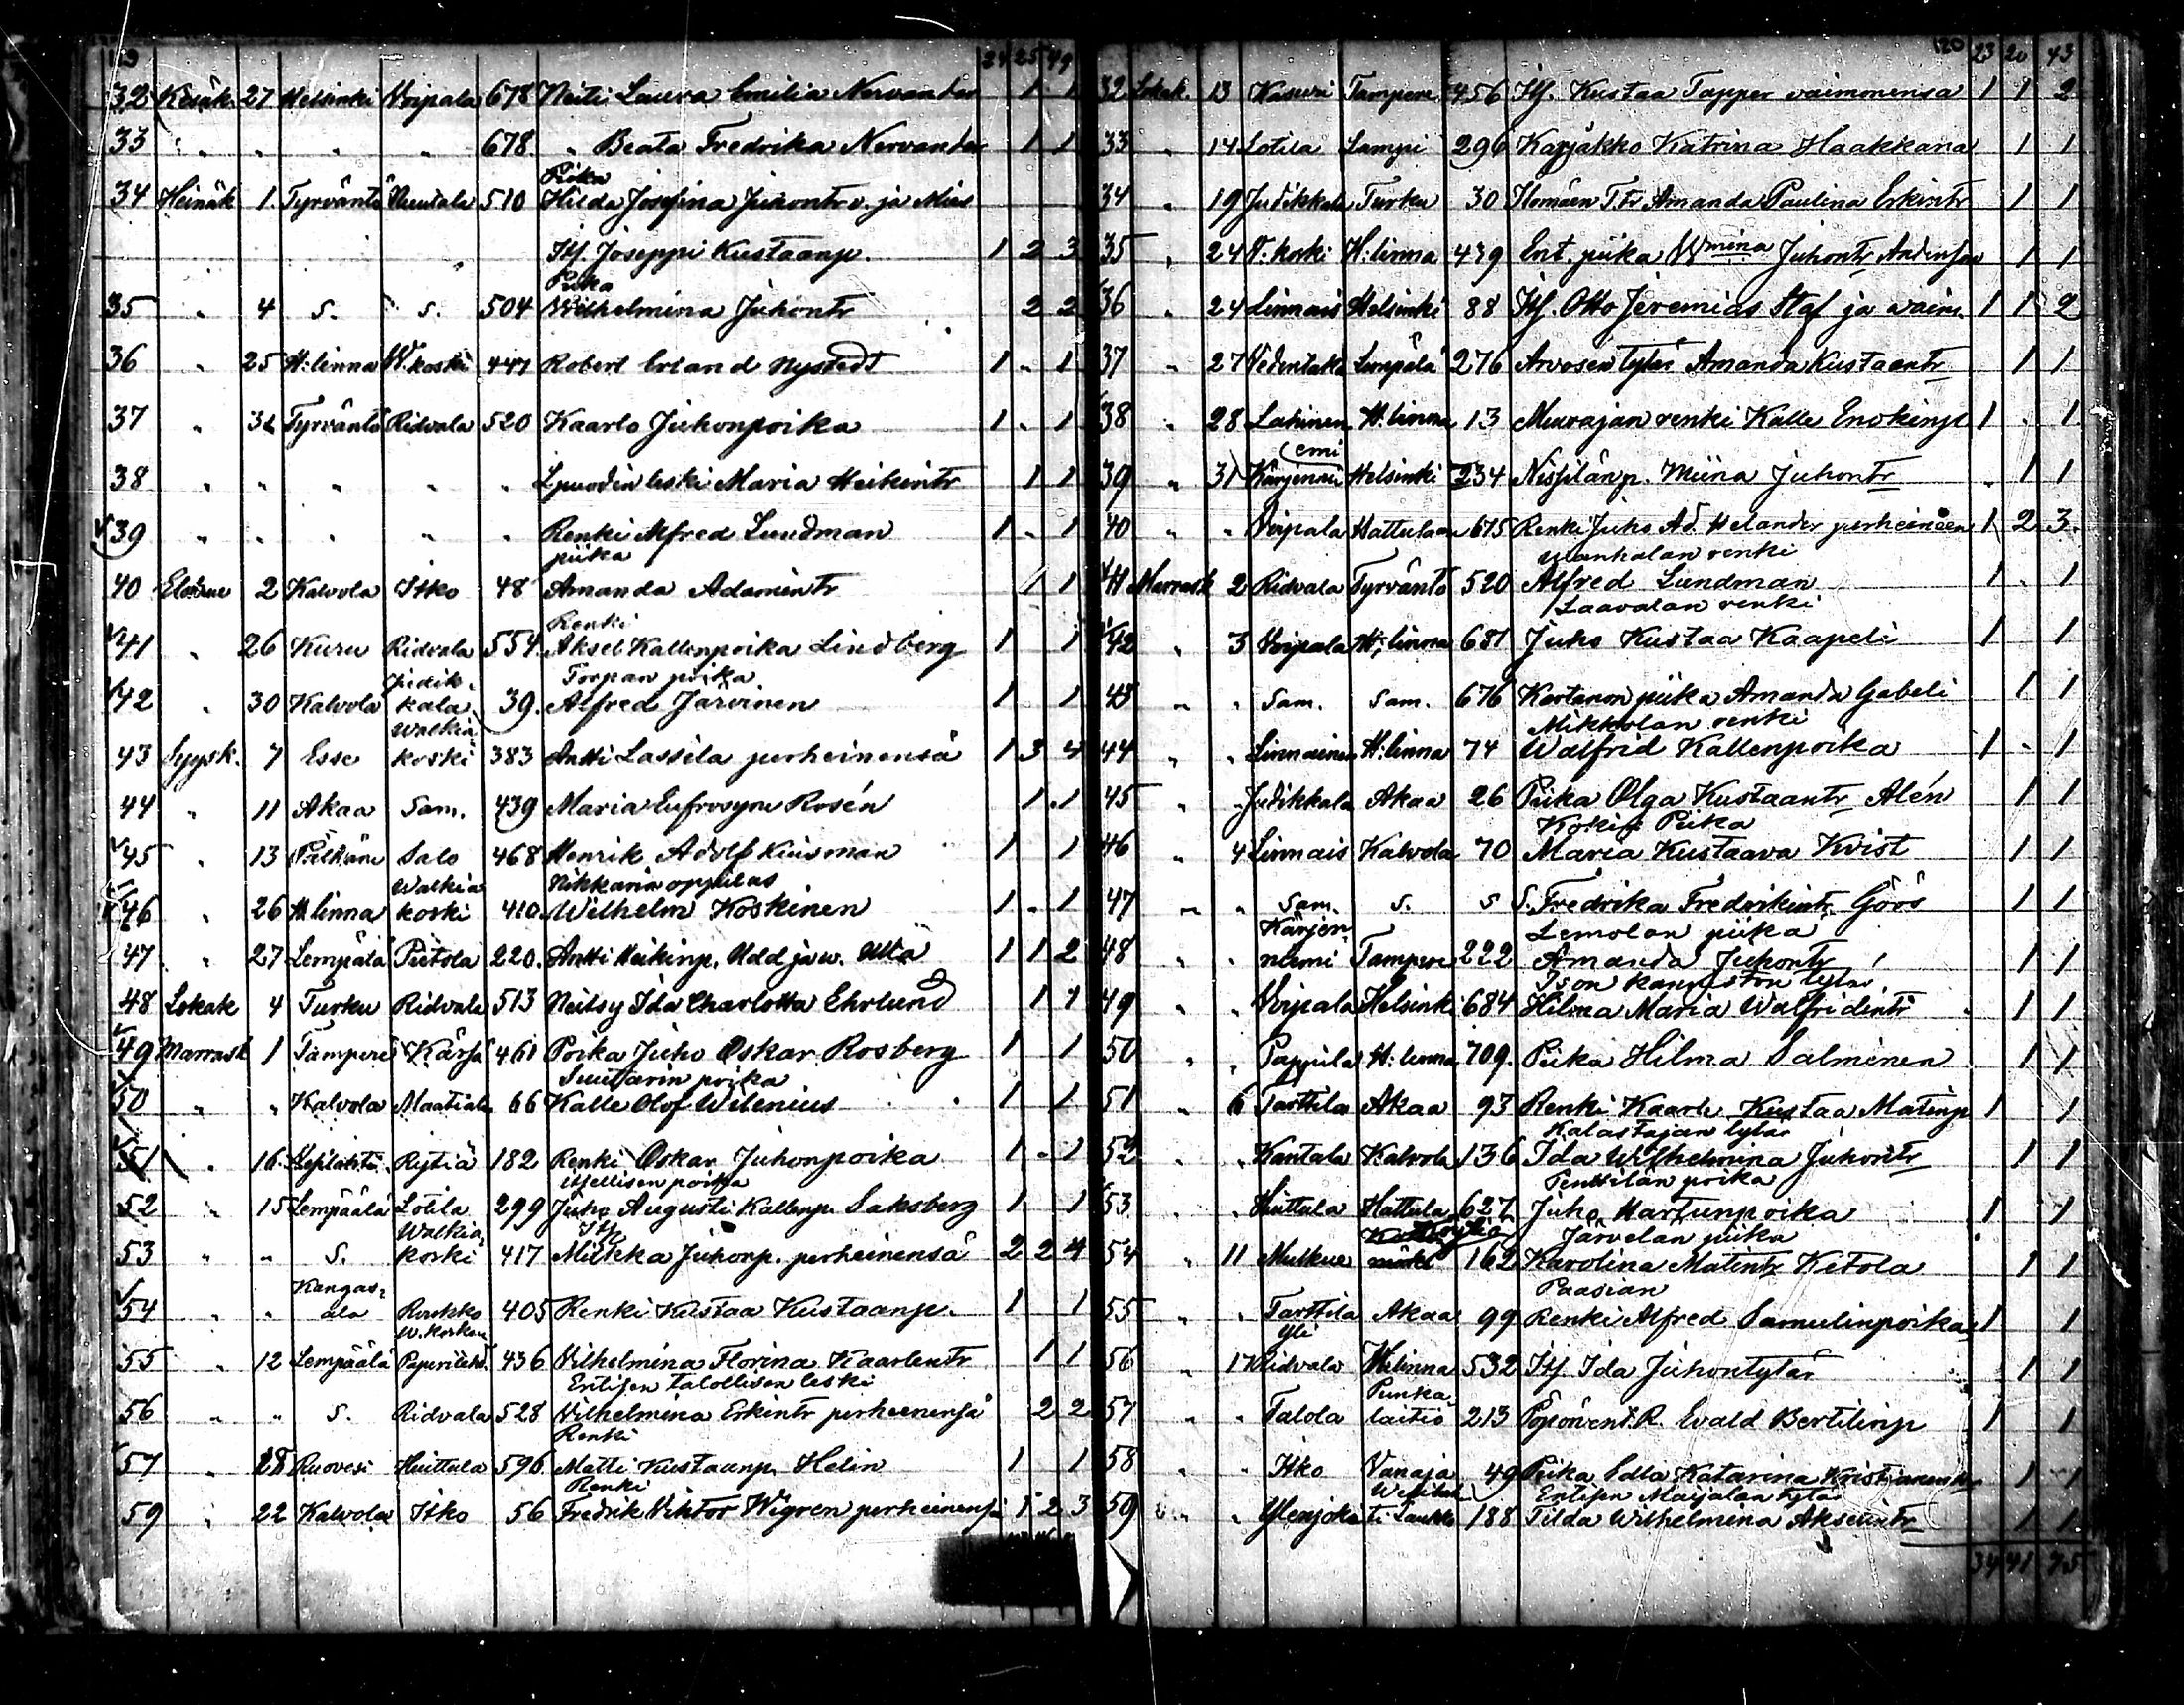 119 24 25 49
32 Kesäk. 27 Helsinki Voipala 678 Neiti Laura Emilia Nervander 1 1
33 " " " " 678 " Beata Fredrika Nervander 1 1
Piika
34 Heinäk 1. Tyrväntö 510 Hilda Josefina Juhontr ja Mies
Itf. Joseppi Kustaanp. 1 2 3
Piika
35 " 4 S. S. 504 Wilhelmina Juhontr 2 2
36 " 25 H:linna W.koski 447 Robert Erland Nystedt 1 " 1
37 " 31 Tyrväntö Ridvala 520 Kaarlo Juhonpoika 1 " 1
38 " " " " " leski Maria Heikintr 1 1
39 " " " " " Renki Alfred Lundman 1 " 1
piika
40 2 Kalvola Itko 48 Amanda Adamintr 1 1
Renki
41 " 26 Kuru Ridvala 554. Aksel Kallenpoika Lindberg 1 1
Judik- Torpan poika
42 " 30 Kalvola kala 39. Alfred Järvinen 1 1
Walkia
43 Syysk. 7 Esse koski 383 Antti Lassila perheinensä 1 3 4
44 " 11 Akaa Sam. 439 Maria Eufrosyne Rosén 1 1
45 " 13 Pälkäne Salo 468 Henrik Adolf Kuisman 1 1
Walkia Nikkarin oppilas
46 " 26 H.linna koski 410 Wilhelm Koskinen 1 " 1
47 " 27 Lempälä Pietola 220. Antti Heikinp. Udd ja w. Ulla 1 1 2
48 Lokak 4 Turku Ridvala 513 Neitsy Ida Charlotta Ehrlund 1 1
49 Marrask 1 Tampere 461 Poika Juho Oskar Rosberg 1 1
Suutarin poika
50 " " Kalvola Maatiala 66 Kalle Olof Wilenius 1 1
51 " 16. Rytiä 182 Renki Oskar Juhonpoika 1 " 1
Itsellisen poika
52 " 15 Lempäälä Lotila 299 Juho Augusti Kallenp. Saksberg 1 1
Walkia Itf
53 " " S. koski 417 Miikka Juhonp. perheinensä 2 2 4
Kangas-
54 " " ala 405 Renki Kustaa Kustaanp. 1 1
W.kosken
55 " 12 Lempäälä Paperiteht. 436 Vilhelmina Florina Kaarlentr 1 1
Entisen talollisen leski
56 " " S. Ridvala 528 Vilhelmina Erkintr perheinensä 2 2
Renki
57 " 28 Ruovesi Huittula 596 Matti Kustaanp. Helin 1 1
Renki
59 " 22 Kalvola Itko 56 Fredrik Viktor Wigren perheinensä 1 2 3
120 23 20 43
32 Lokak. 13 Kasuri Tampere 456 Itf. Kustaa Tapper vaimonensa 1 1 2
33 " 14 Lotila Lampi 296 Karjakko Katrina Haakkana 1 1
34 " 19 Judikkala Turku 30 T.tr Amanda Paulina Erkintr 1 1
35 " 24 W.koski H:linna 439 Ent. piika Wmina Juhontr 1 1
36 " 24 Linnais Helsinki 88 Itf. Otto Jeremias Staf ja waim. 1 1 2
37 " 27 Lempälä 276 Arvosen tytär Amanda Kustaantr 1 1
38 " 28 Lahinen H:linna 13 Muurajan renki Kalle Enokinp 1 " 1
emi
39 " 31 Kärjenni Helsinki 234 Nissilän p. Miina Juhontr " 1 1
40 " " Voipala Hattulaan 675 Renki Juho Ad. Helander perheineen 1 2 3
renki
41 Marrask 2 Ridvala Tyrväntö 520 Alfred Lundman 1 " 1
Laavalan renki
42 " 3 Voipala H:linna 681 Juho Kustaa Kaapeli 1 1
43 " " Sam. Sam. 676 Kartanon piika Amanda Gabeli 1 1
Mikkolan renki
44 " " Linnainen H:linna 74 Walfrid Kallenpoika 1 " 1
45 " " Judikkala Akaa 26 Piika Olga Kustaantr Alén 1 1
Piika
46 " 4 Linnais Kalvola 70 Maria Kustaava Kvist 1 1
47 " " Sam. S. S S. Fredrika Fredrikintr Göös 1 1
Kärjen- Lemolan piika
48 " " niemi Tampere 222 Amanda Juhontr 1 1
Ison tytär
49 " " Voipala Helsinki 684 Hilma Maria Walfridintr 1 1
50 " " Pappila H:linna 709. Piika Hilma Salminen 1 1
51 " 6 Tarttila Akaa 93 Renki Kaarle Kustaa Matinp 1 1
Kalastajan tytär
52 " " Kantala Kalvola 136 Ida Wilhelmina Juhontr 1 1
Penttilän poika
53 " " Huittula Hattula 627 Juho Martinpoika 1 1
Järvelän piika
54 " 11 162 Karolina Matintr Ketola 1 1
Paasian
55 " " Tarttila Akaa 99 Renki Alfred Samulinpoika 1 1
Yli
56 " 17 Ridvala H:linna 532 Itf. Ida Juhontytär 1 1
Punka
57 " " Talola laitio 213 Evald Bertilinp 1 1
58 " " Itko Vanaja 49 Piika Edla Katarina 1 1
Entisen Maijalan tytär
59 " " 188 Tilda Wilhelmina Akselintr 1 1
34 41 75